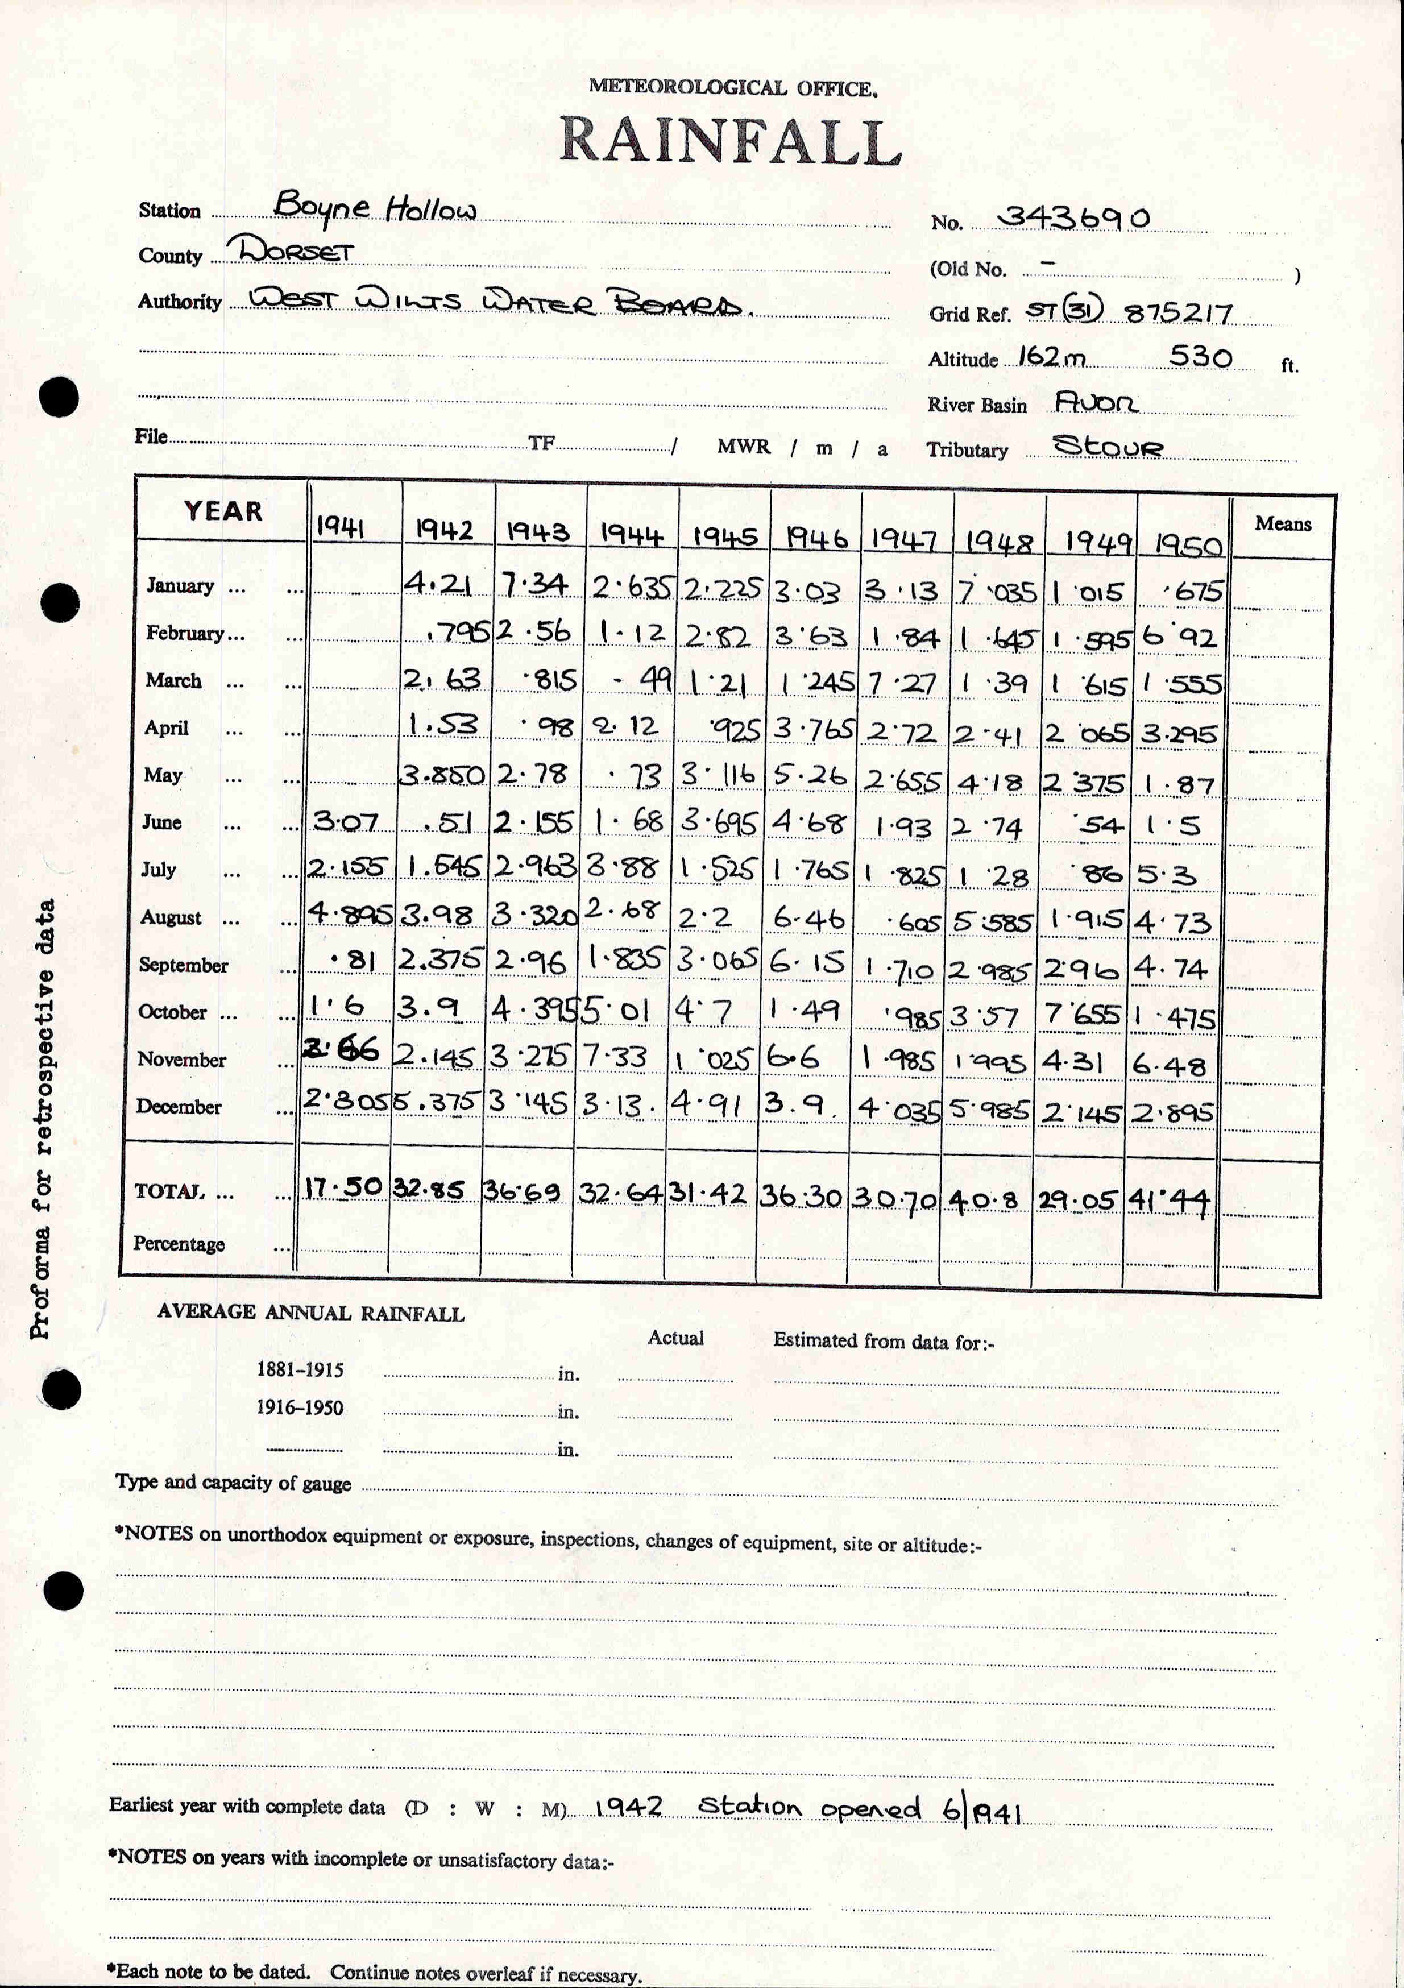 METEOROLOGICAL OFFICE.
RAINFALL
Station Boyne Hollow No. 343690
County DORSET (Old No. - )
Authority WEST WILTS WATER BOARD. Grid Ref. ST(31) 875217
Altitude 162m 530 ft.
River Basin AVON
File TF / MWR / m / a Tributary STOUR
YEAR 1941 1942 1943 1944 1945 1946 1947 1948 1949 1950 Means
January ... ... 4.21 7.34 2.635 2.225 3.03 3.13 7.035 1.015 .675
February ... ... .795 2.56 1.12 2.82 3.63 1.84 1.645 1.595 6.92
March ... ... 2.63 .815 .49 1.21 1.245 7.27 1.39 1.615 1.555
April ... ... 1.53 .98 2.12 .925 3.765 2.72 2.41 2.065 3.295
May ... ... 3.850 2.78 .73 3.116 5.26 2.655 4.18 2.375 1.87
June ... ... 3.07 .51 2.155 1.68 3.695 4.68 1.93 2.74 .54 1.5
July ... ... 2.155 1.545 2.963 3.88 1.525 1.765 1.825 1.28 .86 5.3
August ... ... 4.895 3.98 3.320 2.68 2.2 6.46 .605 5.585 1.915 4.73
September ... .81 2.375 2.96 1.835 3.065 6.15 1.710 2.985 2.96 4.74
October ... ... 1.6 3.9 4.395 5.01 4.7 1.49 .985 3.57 7.655 1.475
November ... 2.145 3.275 7.33 1.025 6.6 1.985 1.995 4.31 6.48
December ... 2.305 5.375 3.145 3.13. 4.91 3.9. 4.035 5.985 2.145 2.895
TOTAL ... ... 17.50 32.85 36.69 32.64 31.42 36.30 30.70 40.8 29.05 41.44
Percentage ...
Proforma for retrospective data
AVERAGE ANNUAL RAINFALL
Actual Estimated from data for:-
1881-1915 in.
1916-1950 in.
in.
Type and capacity of gauge
*NOTES on unorthodox equipment or exposure, inspections, changes of equipment, site or altitude:-
Earliest year with complete data (D : W : M) 1942 Station opened 6/1941
*NOTES on years with incomplete or unsatisfactory data:-
*Each note to be dated. Continue notes overleaf if necessary.